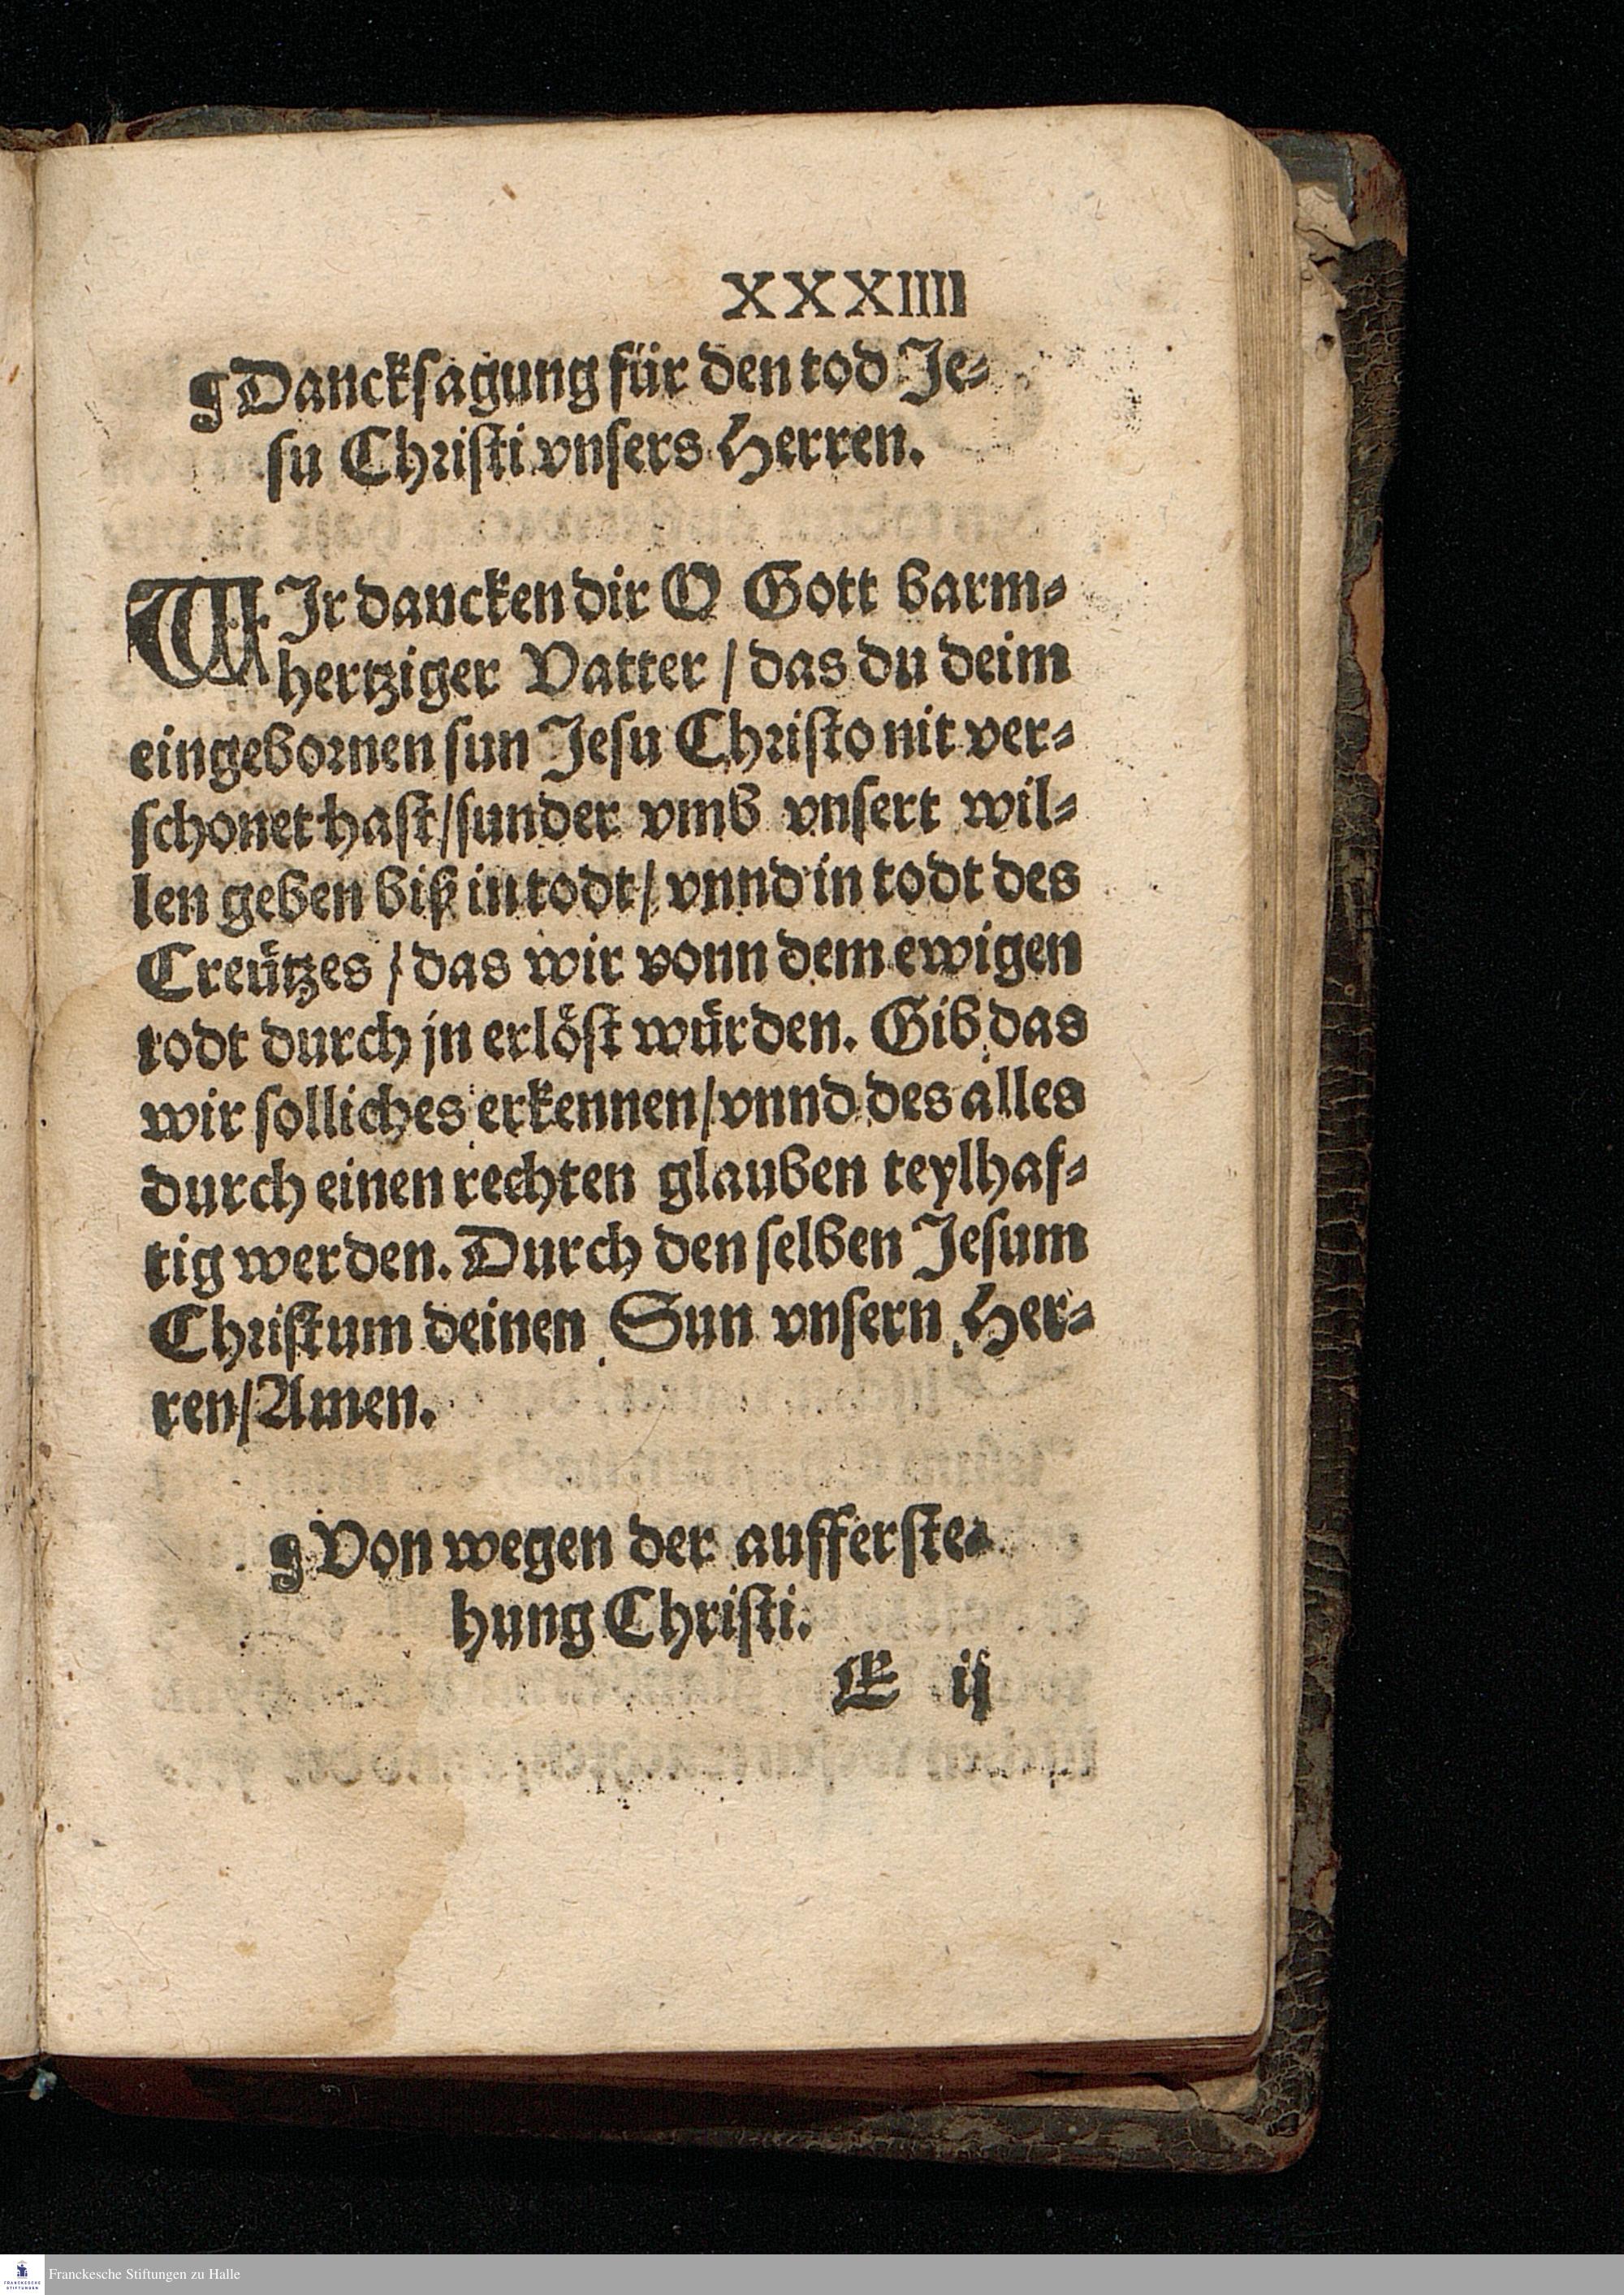 XXXIIII
¶Dancksagung für den tod Je⸗
su Christi vnsers Herren.
WJr dancken dir O Gott barm⸗
hertziger Vatter / das du deim
eingebornen sun Jesu Christo nit ver⸗
schonet hast / sunder vmb vnsert wil⸗
len geben biß in todt / vnnd in todt des
Creützes / das wir vonn dem ewigen
todt durch jn erlöst würden. Gib das
wir solliches erkennen / vnnd des alles
durch einen rechten glauben teylhaf⸗
tig werden. Durch den selben Jesum
Christum deinen Sun vnsern Her⸗
ren / Amen.
¶Von wegen der aufferste⸗
hung Christi.
E ij
Franckesche Stiftungen zu Halle
FRANCKESCHE
STIFTUNGEN